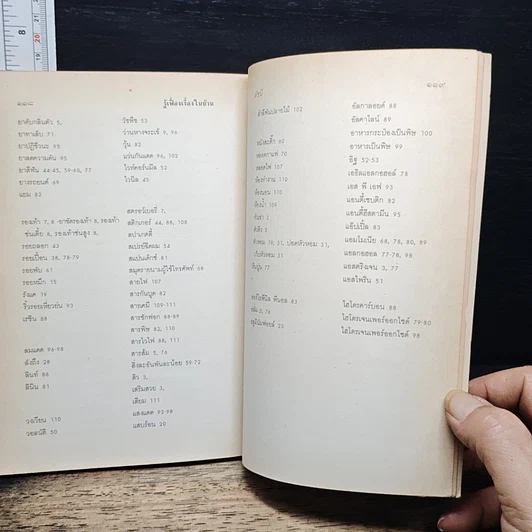 ๑๑๘
รู้เฟื่องเรื่องในบ้าน
ยาดับกลิ่นตัว 5,
ยาทาเล็บ 71
ยาปฏิชีวนะ 95
ยาลดความดัน 95
ยาสีฟัน 44-45, 59-60, 77
ยางรถยนต์ 69
แยม 82
รองเท้า 7, 8 -ยาขัดรองเท้า 8, รองเท้า
ส้นเตี้ย 8, รองเท้าส้นสูง 8,
รอยถลอก 42
รอยเปื้อน 38, 78-79
รอยพับ 61
รอยหมึก 15
รังแค 19
ริ้วรอยเหี่ยวย่น 93
เรซิน 88
ลมแดด 96-98
ลังถึง 28
ลินท์ 86
ลินิน 81
วงเวียน 110
วอลนัติ 50
วัชพืช 53
ว่านหางจระเข้ 9, 96
วุ้น 82
แว่นกันแดด 96, 102
ไวท์คอร์นมีล 52
ไวนิล 45
สตรอว์เบอรี่ 7,
สติกเกอร์ 44, 88, 108
สปาเกตตี้
สเปรย์ฉีดผม 54
สแปนเด็กซ์ 61
สมุดรายนามผู้ใช้โทรศัพท์ 68
สายไฟ 107
สารกันบูด 82
สารเคมี 109-111
สารซักฟอก 88-89
สารพิษ 82, 110
สารไวไฟ 86, 111
สารส้ม 5, 76
สิ่งละอันพันละน้อย 59-72
สิว 3,
เสริมสวย 3,
เตียม 111
แสงแดด 93-98
แสบร้อน 20
๑๑๙
ดัชนี
สำลีพันปลายไม้ 102
หนังสะติ๊ก 60
หลอดกาแฟ 70
หลอดไฟ 107
ห้องทำงาน 110
ห้องนอน 110
ห้องน้ำ 109
หัวเข่า 3
หัวสิว 3
หัวหอม 70, 31, ปอกหัวหอม 31,
เก็บหัวหอม 31
หิ้นปูน 77
อะลูมิเนียม 23
อัลกาลอยด์ 88
อัลคาไลน์ 89
อาหารกระป๋องเป็นพิษ 100
อาหารเป็นพิษ 99
อิฐ 52-53
เอธิลแอลกอฮอล์ 78
เอส พี เอฟ 93
แอนตี้เซปติก 82
แอนตี้ฮีสตามีน 95
แอ๊ปเปิ้ล 83
แอมโมเนีย 68, 78, 80, 89
แอลกอฮอล์ 77-78, 98
แอสตริงเจน 3, 77
แอสไพริน 51
ไฮโดรคาร์บอน 88
ไฮโดรเจนเพอร์ออกไซด์ 79-80
ไฮโดรเจนเพอร์ออกไซด์ 98